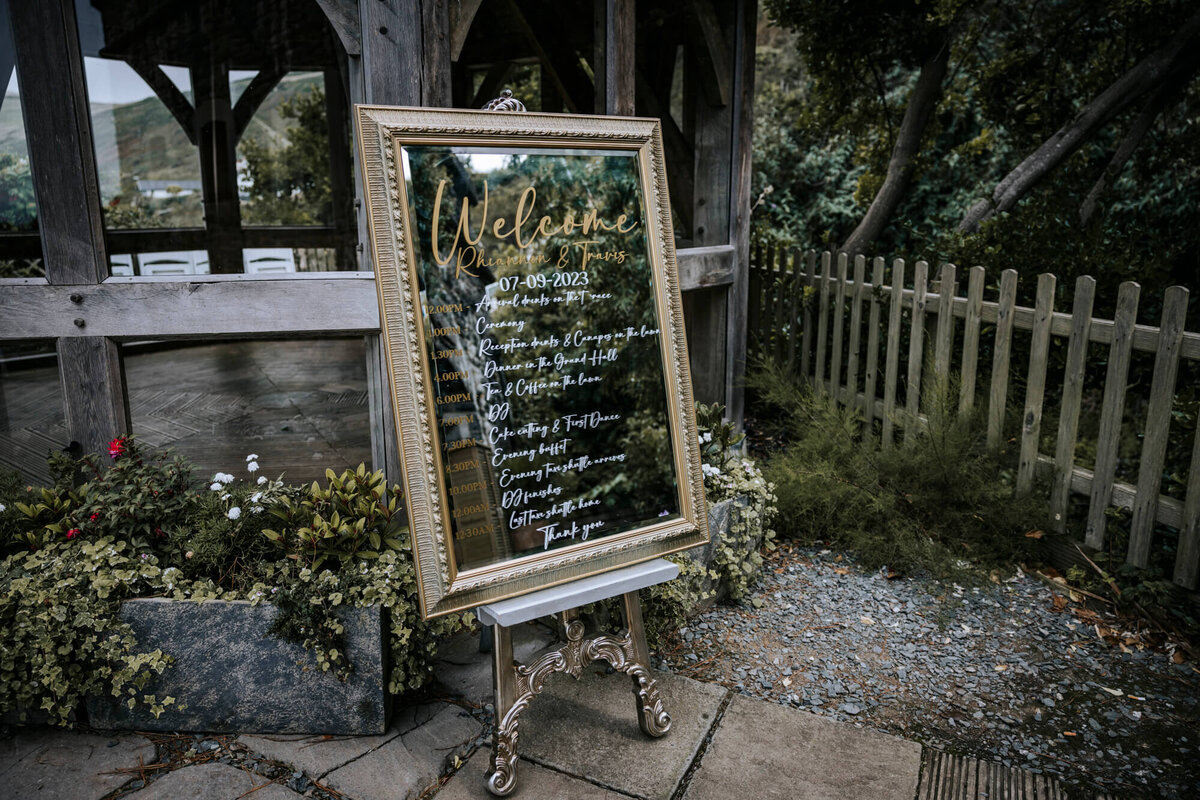 Welcome
Rhiannon & Travis
07-09-2023
12.00PM Arrival drinks on the T race
1.00PM Ceremony
1.30PM Reception drinks & Canapes on the lawn
4.00PM Dinner in the Grand Hall
6.00PM Tea & Coffee on the lawn
7.00PM DJ
7.30PM Cake cutting & First Dance
8.30PM Evening buffet
10.00PM Evening taxi shuttle arrives
12.00AM DJ finishes
12.30AM Last taxi shuttle home
Thank you